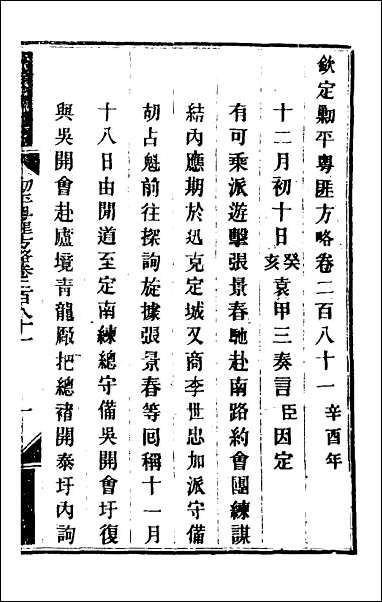 欽定勦平粵匪方略卷二百八十一 辛酉年
十二月初十日癸亥袁甲三奏言臣因定
有可乘派遊擊張景春馳赴南路約會團練謀
結內應期於迅克定城又商李世忠加派守備
胡占魁前往探詢旋據張景春等囘稱十一月
十八日由閒道至定南練總守備吳開會圩復
與吳開會赴廬境青龍厰把總褚開泰圩內詢
勦平粵匪方略卷二百八十一 一